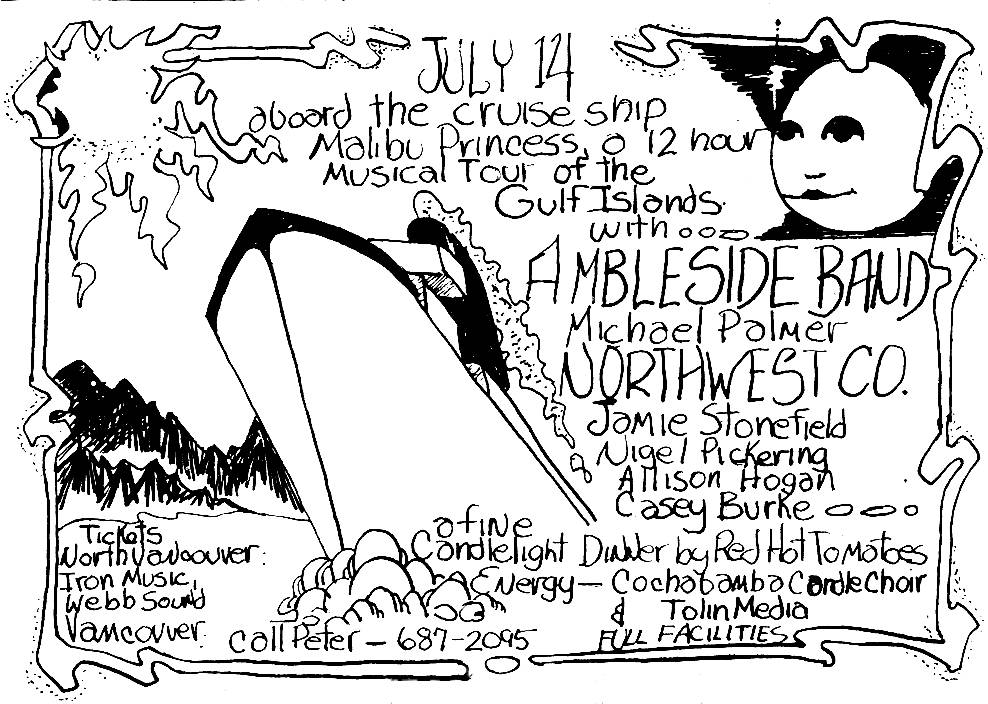 JULY 14
aboard the cruise ship
Malibu Princess, a 12 hour
Musical Tour of the
Gulf Islands
with
AMBLESIDE BAND
Michael Palmer
NORTHWEST CO.
Jamie Stonefield
Nigel Pickering
Allison Hogan
Casey Burke
a fine
Candlelight Dinner by Red Hot Tomatoes
Energy - Cochabamba Candle Choir
& Tolin Media
FULL FACILITIES
Tickets
North Vancouver:
Iron Music,
Webb Sound
Vancouver:
Call Peter - 687-2095